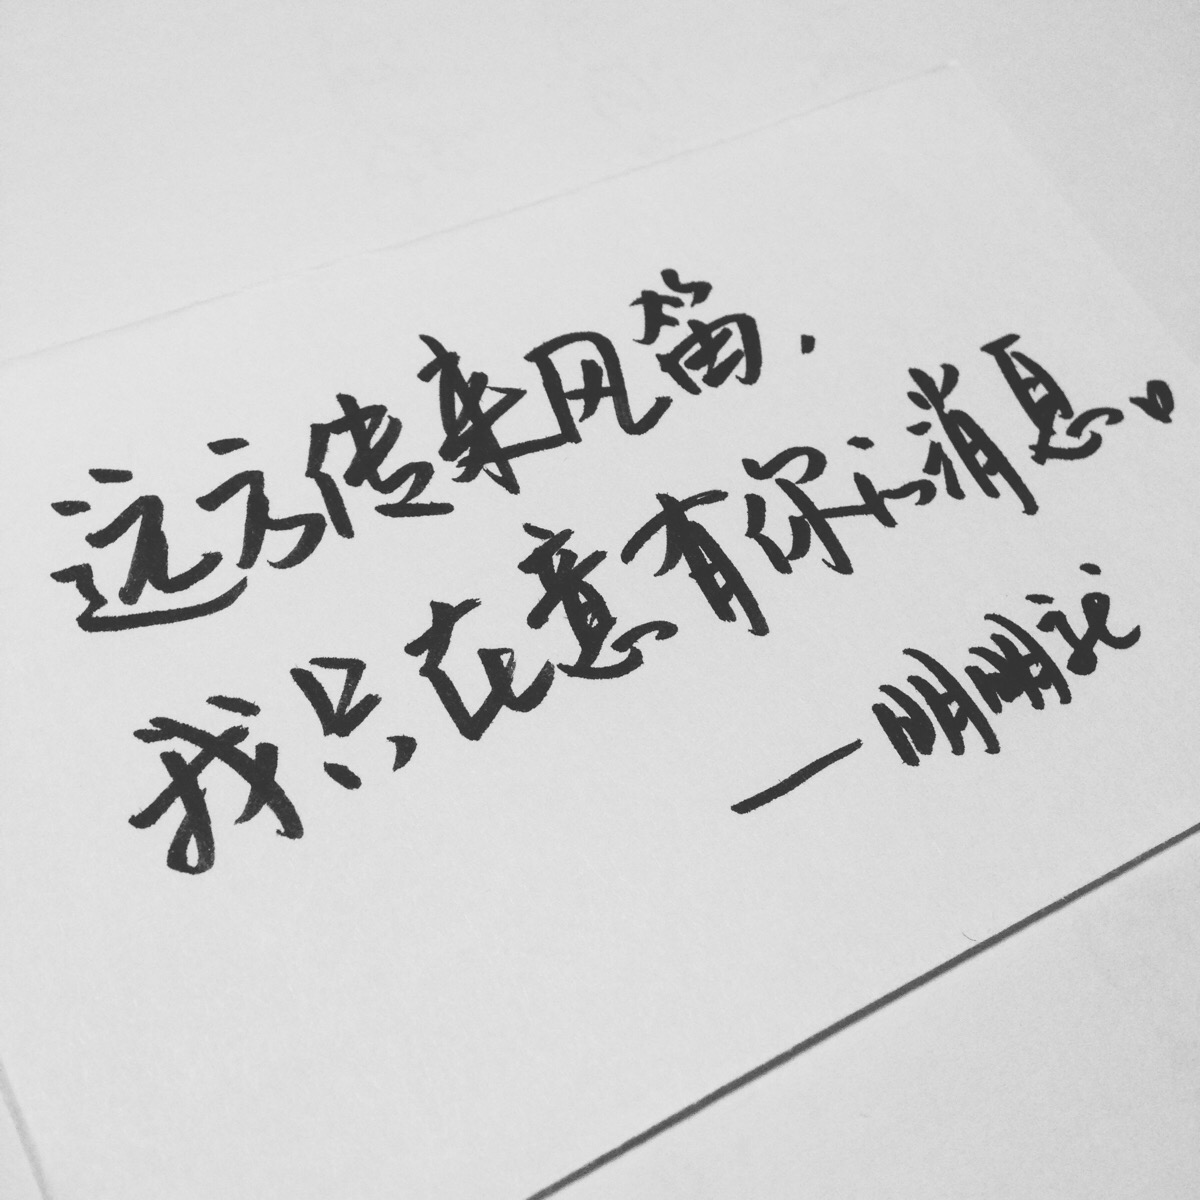 远方传来风笛，
我只在意有你的消息。
—明明就